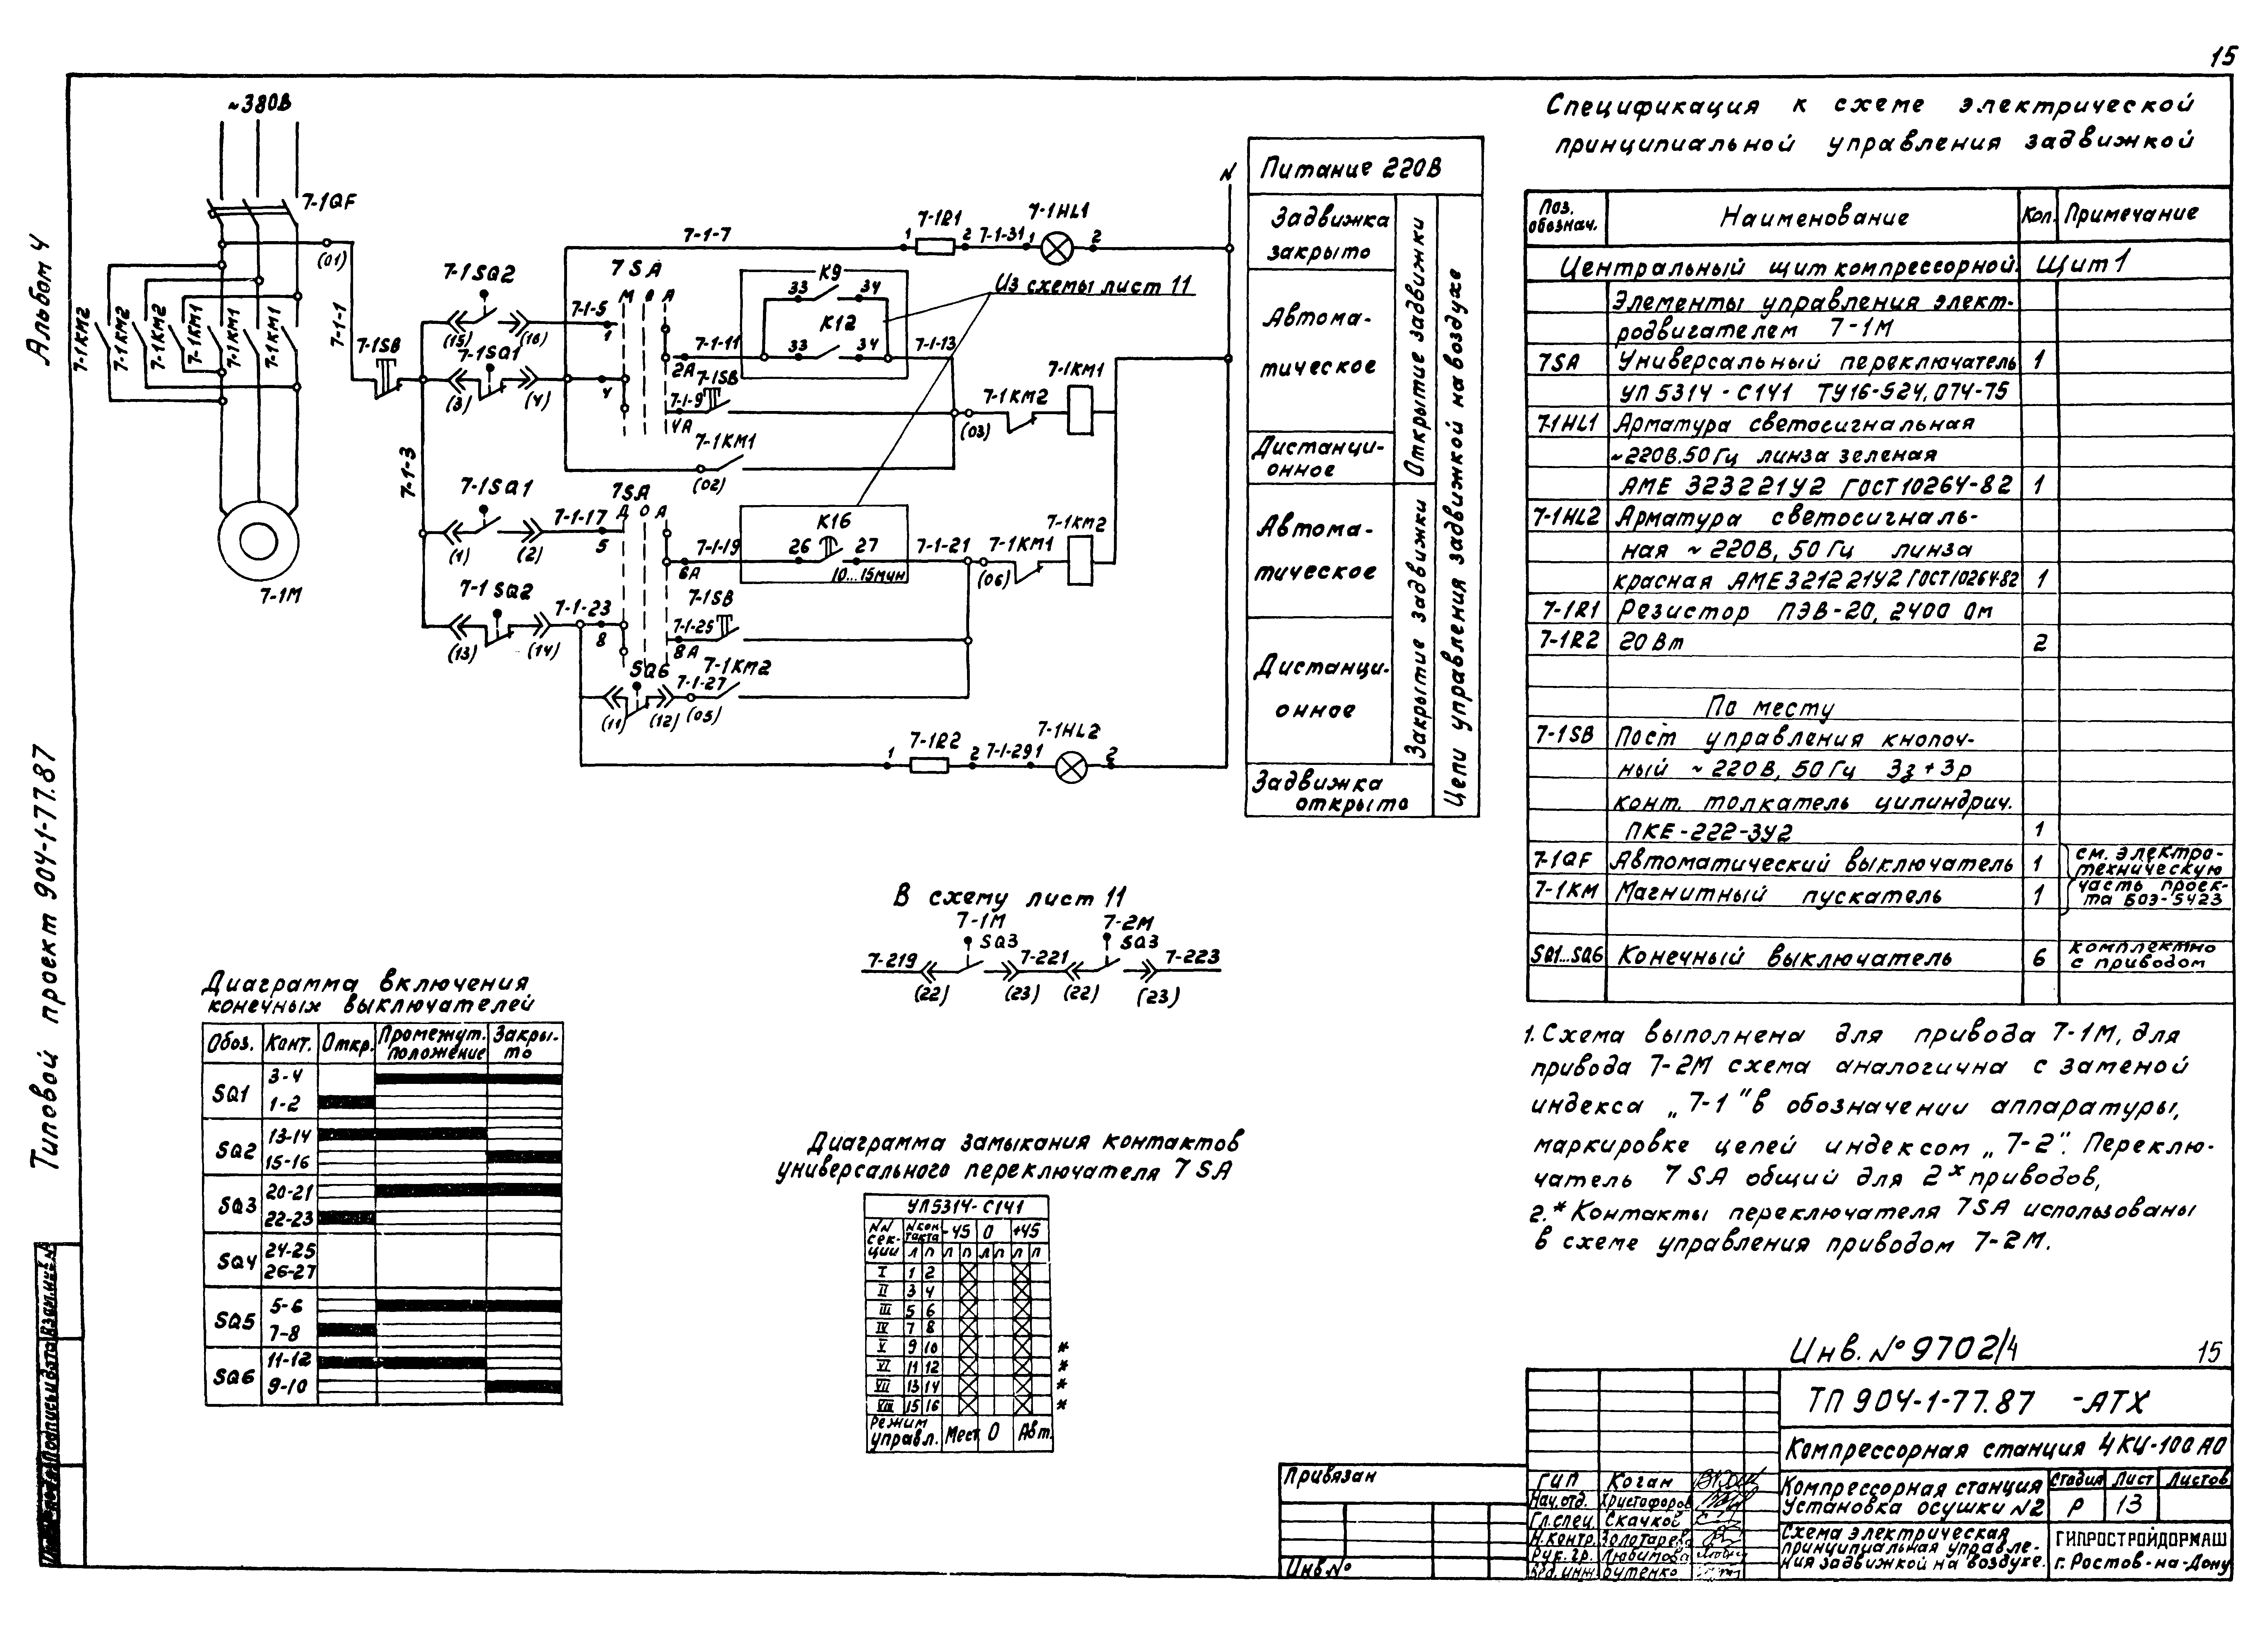 15
Альбом 4
Типовой проект 904-1-77.87
~380В
7-1QF
(01)
7-1-1
7-1КМ2
7-1КМ2
7-1КМ2
7-1КМ1
7-1КМ1
7-1КМ1
7-1М
7-1SB
7-1-3
7-1SQ2
(15)
(16)
7-1-5
1
7-1SQ1
(3)
(4)
4
7SA
М О А
7-1-7
1
7-1R1
2
7-1-31
1
7-1HL1
2
N
К9
33
34
К12
33
34
Из схемы лист 11
7-1-11
2А
7-1-13
7-1SB
7-1-9
4А
7-1КМ1
(02)
(03)
7-1КМ2
7-1КМ1
7-1SQ1
(1)
(2)
7-1-17
5
7SA
Д О А
7-1-19
6А
К16
26
27
10...15мин
7-1-21
(06)
7-1КМ1
7-1КМ2
7-1SQ2
(13)
(14)
7-1-23
8
7-1SB
7-1-25
8А
SQ6
(11)
(12)
7-1-27
(05)
7-1КМ2
1
7-1R2
2
7-1-29
1
7-1HL2
2
Питание 220В
Задвижка
закрыто
Автома-
тическое
Дистанци-
онное
Автома-
тическое
Дистанци-
онное
Задвижка
открыто
Открытие задвижки
Закрытие задвижки
Цепи управления задвижкой на воздухе
В схему лист 11
7-1М
7-2М
SQ3
SQ3
7-219
7-221
7-223
(22)
(23)
(22)
(23)
Диаграмма включения
конечных выключателей
Обоз. Конт. Откр. Промежут. положение Закры-то
SQ1 3-4
1-2
SQ2 13-14
15-16
SQ3 20-21
22-23
SQ4 24-25
26-27
SQ5 5-6
7-8
SQ6 11-12
9-10
Диаграмма замыкания контактов
универсального переключателя 7SA
УП5314-С141
NN сек-ции N кон-такта -45 0 +45
Л П Л П Л П Л П
I 1 2
II 3 4
III 5 6
IV 7 8
V 9 10 *
VI 11 12 *
VII 13 14 *
VIII 15 16 *
Режим управл. Мест 0 Авт.
Спецификация к схеме электрической
принципиальной управления задвижкой
Поз. обознач. Наименование Кол. Примечание
Центральный щит компрессорной. Щит 1
Элементы управления элект-
родвигателем 7-1М
7SA Универсальный переключатель 1
УП 5314-С141 ТУ16-524.074-75
7-1HL1 Арматура светосигнальная
~220В.50Гц линза зеленая
АМЕ 323221У2 ГОСТ 10264-82 1
7-1HL2 Арматура светосигналь-
ная ~220В, 50Гц линза
красная АМЕ321221У2 ГОСТ10264-82 1
7-1R1 Резистор ПЭВ-20, 2400 Ом
7-1R2 20Вт 2
По месту
7-1SB Пост управления кнопоч-
ный ~220В, 50Гц 3з+3р
конт. толкатель цилиндрич.
ПКЕ-222-3У2 1
7-1QF Автоматический выключатель 1 см. электро-
техническую
7-1КМ Магнитный пускатель 1 часть проек-
та БОЭ-5423
SQ1...SQ6 Конечный выключатель 6 комплектно
с приводом
1. Схема выполнена для привода 7-1М, для
привода 7-2М схема аналогична с заменой
индекса „7-1" в обозначении аппаратуры,
маркировке цепей индексом „7-2". Переклю-
чатель 7SA общий для 2х приводов,
2.* Контакты переключателя 7SA использованы
в схеме управления приводом 7-2М.
Инв. № 9702/4
15
ТП 904-1-77.87 -АТХ
Компрессорная станция 4КЦ-100АО
Компрессорная станция
Установка осушки №2
Стадия Лист Листов
Р 13
Схема электрическая
принципиальная управле-
ния задвижкой на воздухе.
ГИПРОСТРОЙДОРМАШ
г. Ростов-на-Дону
ГИП Коган
Нач.отд. Христофоров
Гл.спец. Скачков
Н.контр. Золотарева
Рук. гр. Любимова
Вед.инж. Бутенко
Привязан
Инв №
Подпись и дата
Взам.инв.№